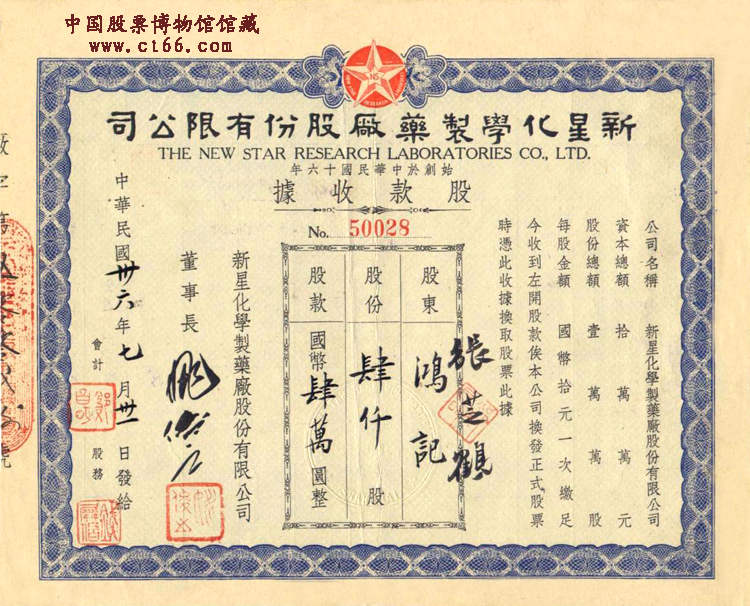 中国股票博物馆馆藏
www.ct66.com
NS
新星化學製藥廠股份有限公司
THE NEW STAR RESEARCH LABORATORIES CO., LTD.
始創於中華民國十六年
股款收據
No. 50028
公司名稱 新星化學製藥廠股份有限公司
資本總額 拾萬萬元
股份總額 壹萬萬股
每股金額 國幣拾元一次繳足
今收到左開股款俟本公司換發正式股票
時憑此收據換取股票此據
股東 鴻記
張芝鶴
股份 肆仟股
股款 國幣肆萬圓整
新星化學製藥廠股份有限公司
董事長
會計
股務
中華民國卅六年七月卅一日發給